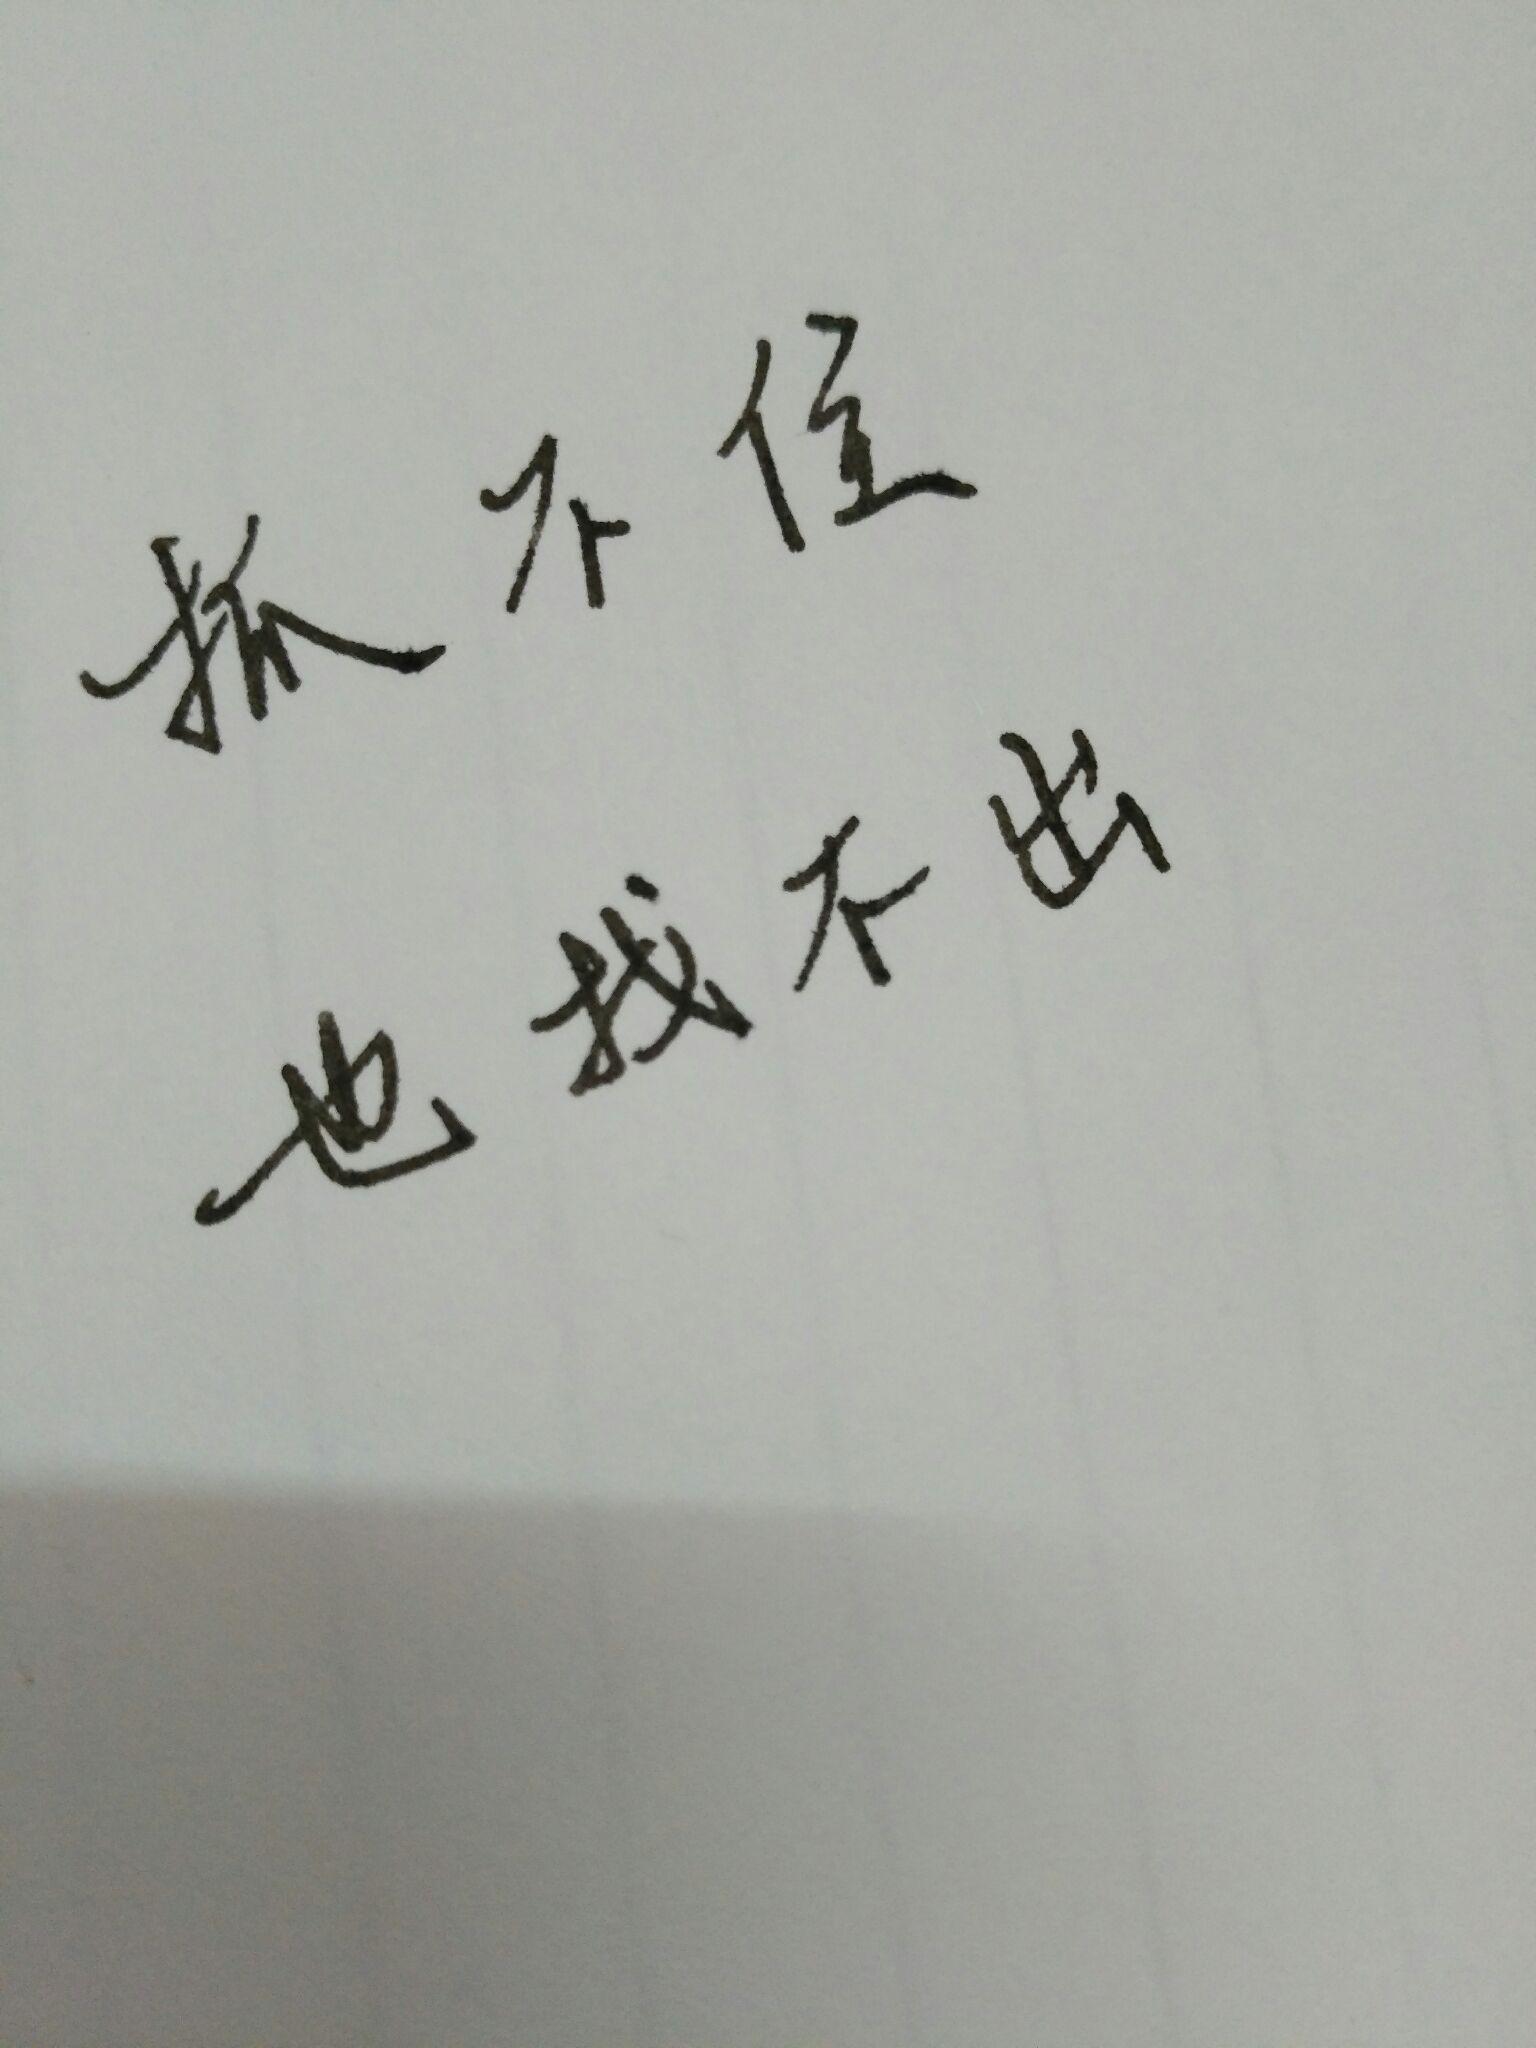 抓不住
也找不出